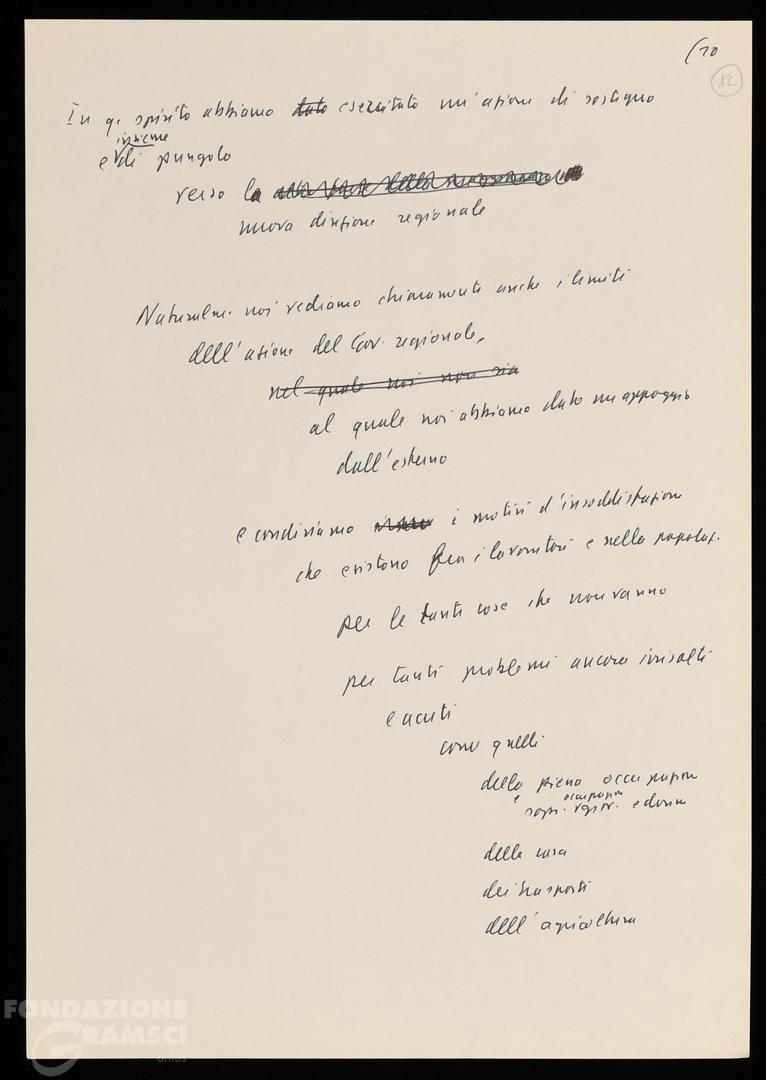 (10
12
In q. spirito abbiamo dato esercitato un'azione di sostegno
insieme
e di pungolo
verso la
nuova direzione regionale
Naturalm. noi vediamo chiaramente anche i limiti
dell'azione del Gov. regionale,
nel quale noi non sia
al quale noi abbiamo dato un appoggio
dall'esterno
e condiviamo i motivi d'insoddisfazione
che esistono fra i lavoratori e nella popolaz.
per le tante cose che non vanno
per tanti problemi ancora irrisolti
e acuti
come quelli
della piena occupazione
e occupazion
giov. e donne
della casa
dei trasporti
dell'agricoltura
FONDAZIONE
GRAMSCI
onlus